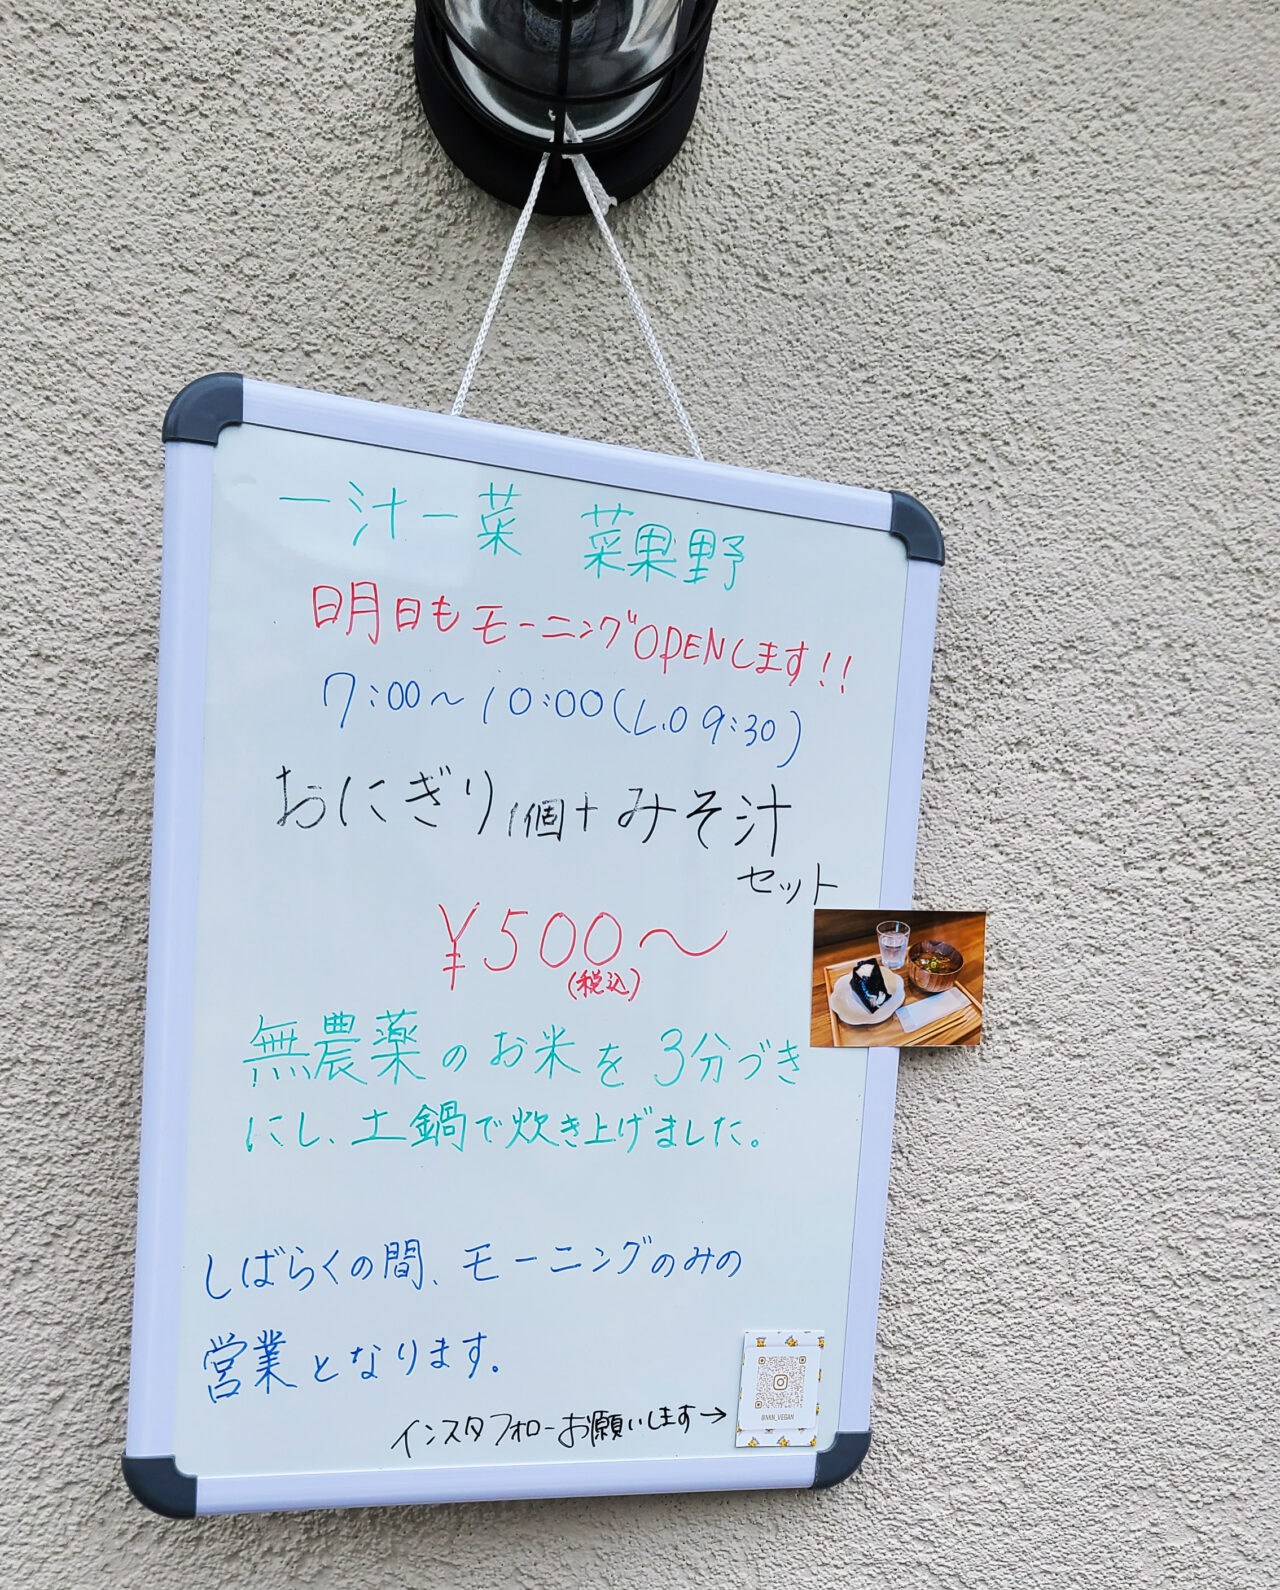 一汁一菜 菜果野
明日もモーニングOPENします!!
7:00～10:00(L.O 9:30)
おにぎり1個+みそ汁
セット
¥500～
(税込)
無農薬のお米を3分づき
にし、土鍋で炊き上げました。
しばらくの間、モーニングのみの
営業となります。
インスタフォローお願いします→